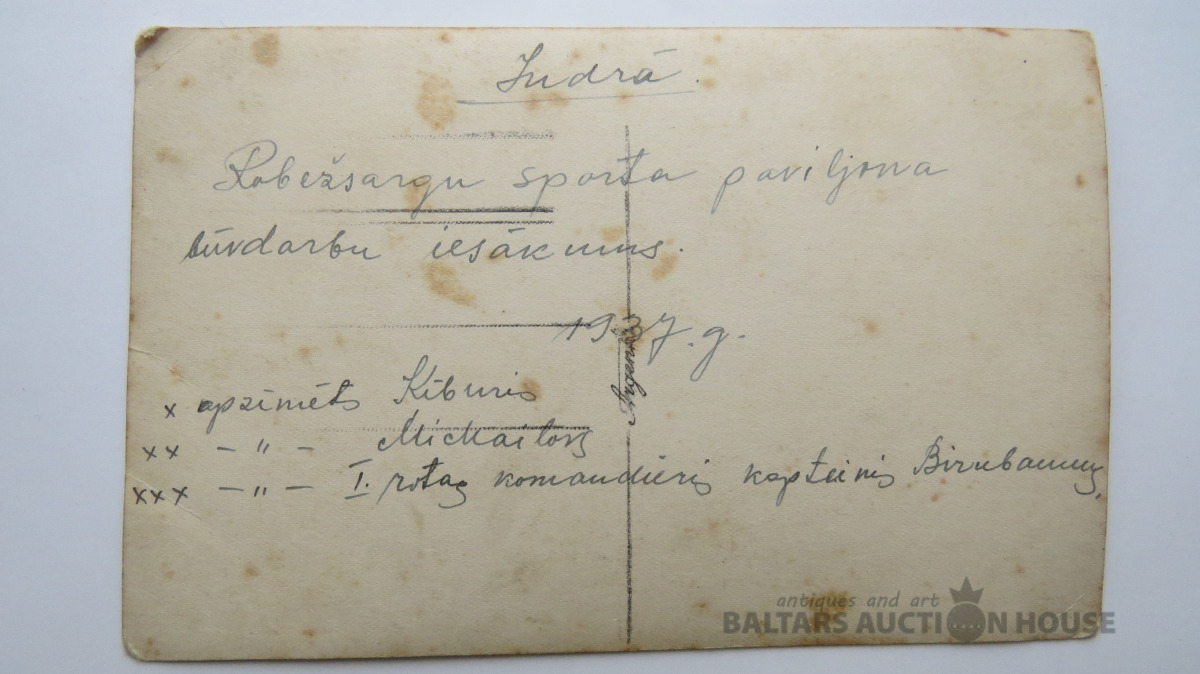 Indrā.
Robežsargu sporta paviljona
būvdarbu iesākums.
19 7.g.
x apzīmēts Ķiburis
xx – " – Mickailovs
xxx – " – I. rotas komandieris kapteinis Birnbaums,
antiques and art
BALTARS AUCTION HOUSE